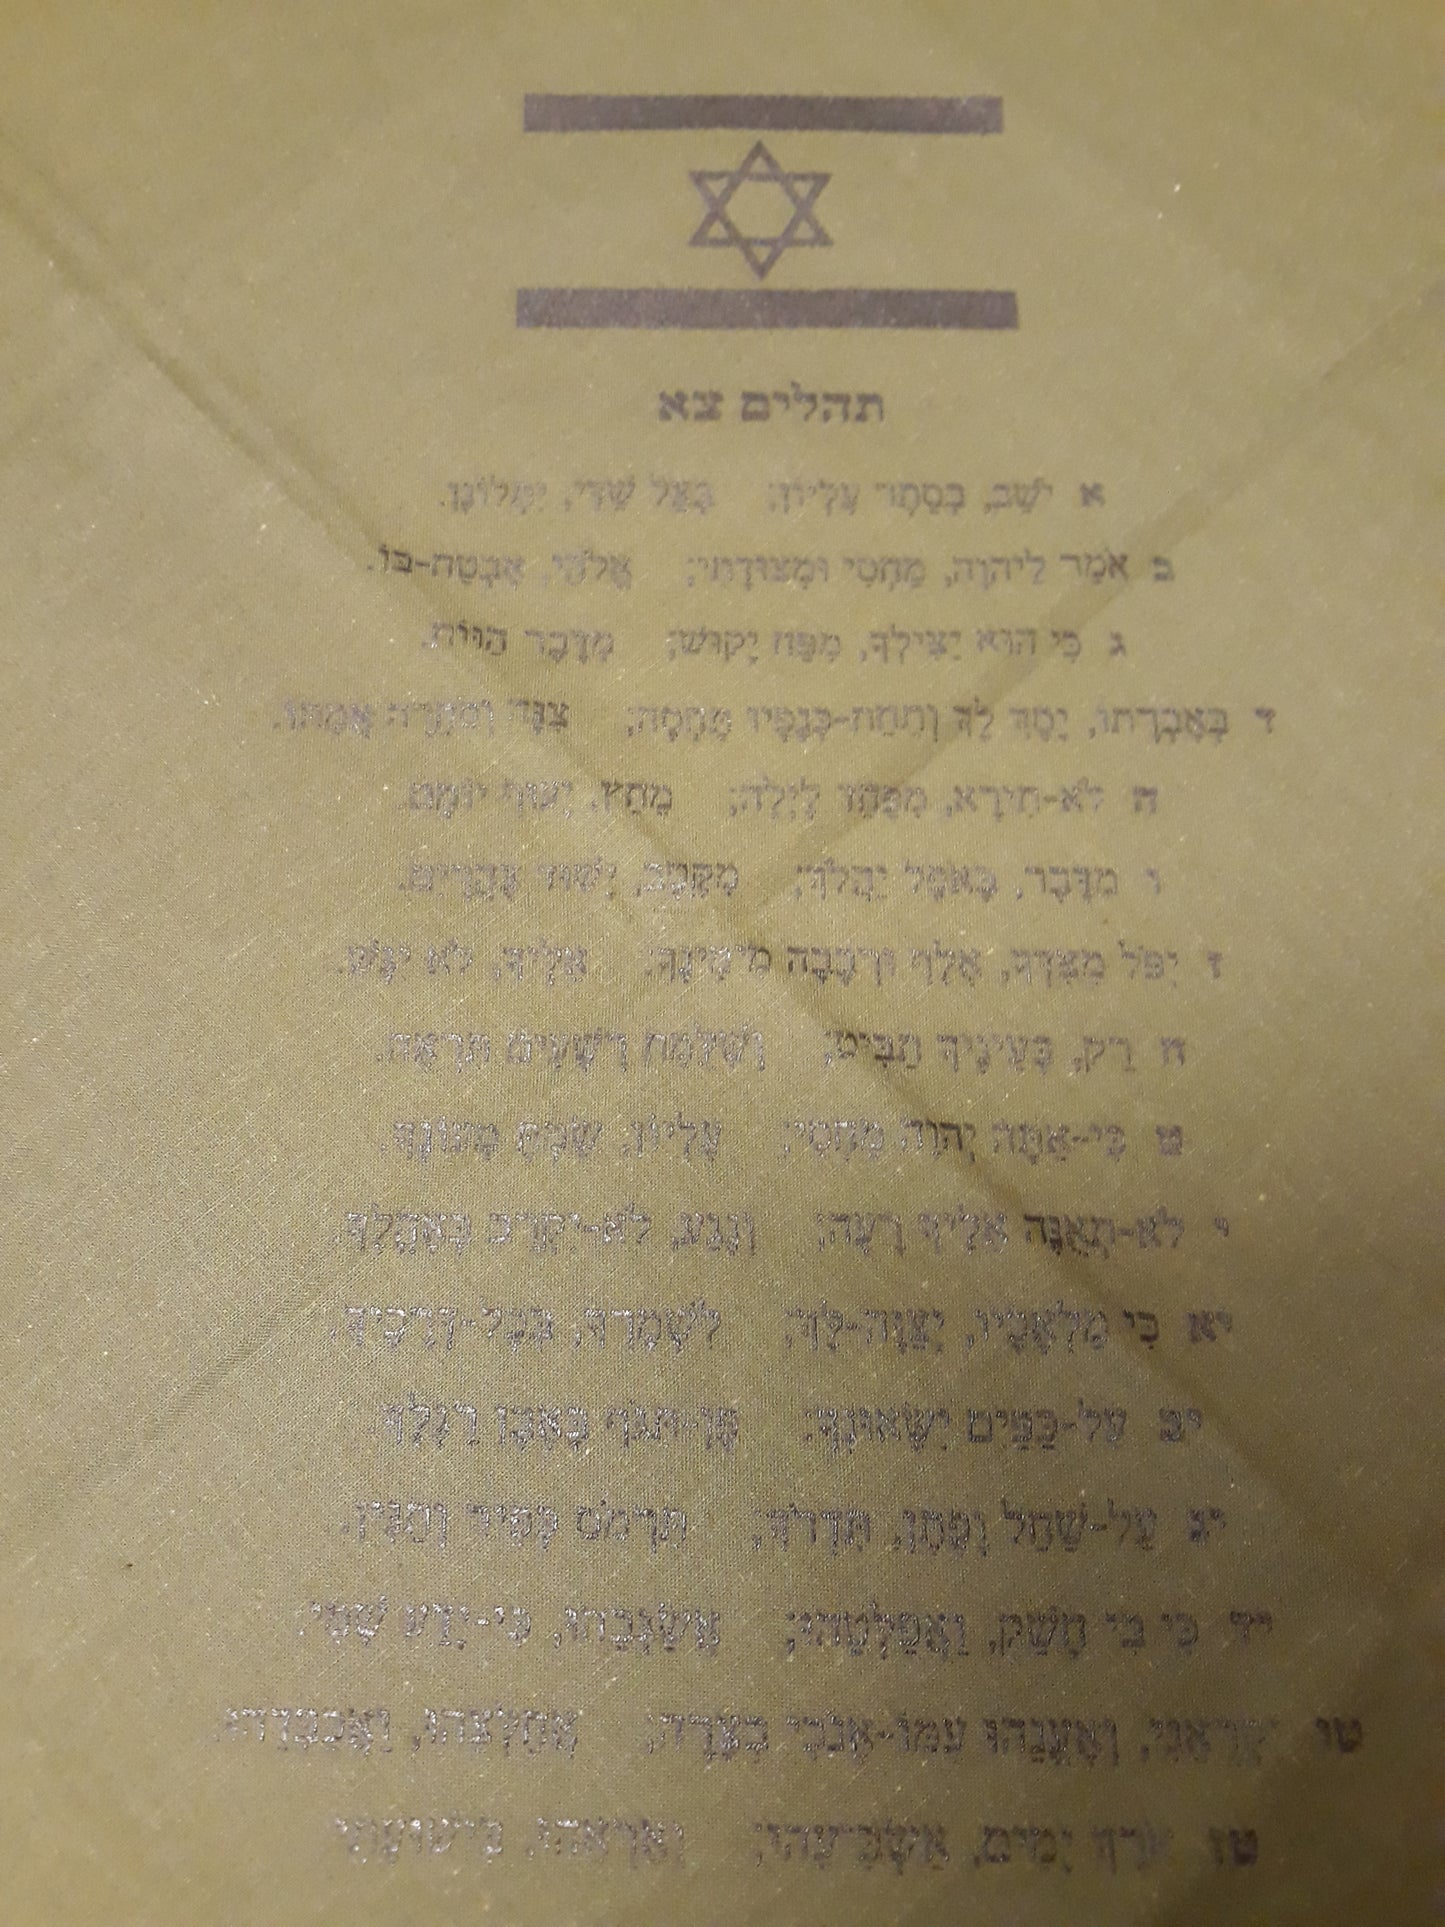 תהלים צא
א יֹשֵׁב, בְּסֵתֶר עֶלְיוֹן; בְּצֵל שַׁדַּי, יִתְלוֹנָן.
ב אֹמַר לַיהוָה, מַחְסִי וּמְצוּדָתִי; אֱלֹהַי, אֶבְטַח-בּוֹ.
ג כִּי הוּא יַצִּילְךָ, מִפַּח יָקוּשׁ; מִדֶּבֶר הַוּוֹת.
ד בְּאֶבְרָתוֹ, יָסֶךְ לָךְ וְתַחַת-כְּנָפָיו תֶּחְסֶה; צִנָּה וְסֹחֵרָה אֲמִתּוֹ.
ה לֹא-תִירָא, מִפַּחַד לָיְלָה; מֵחֵץ, יָעוּף יוֹמָם.
ו מִדֶּבֶר, בָּאֹפֶל יַהֲלֹךְ; מִקֶּטֶב, יָשׁוּד צָהֳרָיִם.
ז יִפֹּל מִצִּדְּךָ, אֶלֶף וּרְבָבָה מִימִינֶךָ; אֵלֶיךָ, לֹא יִגָּשׁ.
ח רַק, בְּעֵינֶיךָ תַבִּיט; וְשִׁלֻּמַת רְשָׁעִים תִּרְאֶה.
ט כִּי-אַתָּה יְהוָה מַחְסִי; עֶלְיוֹן, שַׂמְתָּ מְעוֹנֶךָ.
י לֹא-תְאֻנֶּה אֵלֶיךָ רָעָה; וְנֶגַע, לֹא-יִקְרַב בְּאָהֳלֶךָ.
יא כִּי מַלְאָכָיו, יְצַוֶּה-לָּךְ; לִשְׁמָרְךָ, בְּכָל-דְּרָכֶיךָ.
יב עַל-כַּפַּיִם יִשָּׂאוּנְךָ; פֶּן-תִּגֹּף בָּאֶבֶן רַגְלֶךָ.
יג עַל-שַׁחַל וָפֶתֶן, תִּדְרֹךְ; תִּרְמֹס כְּפִיר וְתַנִּין.
יד כִּי בִי חָשַׁק, וַאֲפַלְּטֵהוּ; אֲשַׂגְּבֵהוּ, כִּי-יָדַע שְׁמִי.
טו יִקְרָאֵנִי, וְאֶעֱנֵהוּ עִמּוֹ-אָנֹכִי בְצָרָה; אֲחַלְּצֵהוּ, וַאֲכַבְּדֵהוּ.
טז אֹרֶךְ יָמִים, אַשְׂבִּיעֵהוּ; וְאַרְאֵהוּ, בִּישׁוּעָתִי.